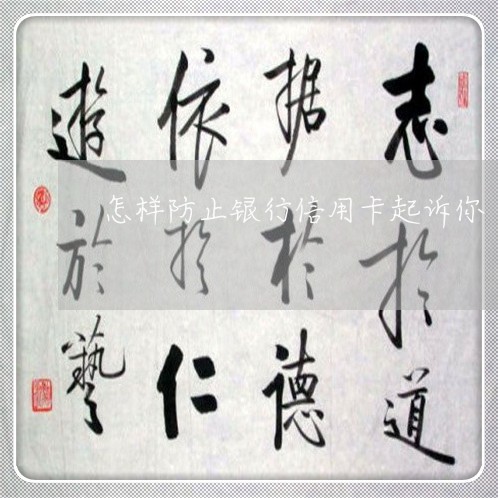 志於道
据於德
依於仁
遊於藝
怎样防止银行信用卡起诉你